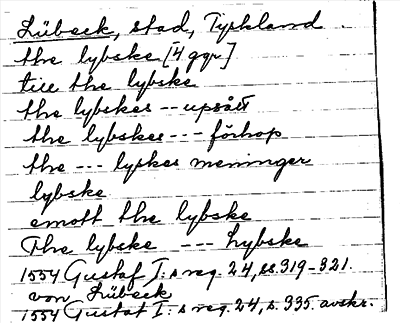 Lübeck, stad, Tyskland
the lybske [4 ggr]
till the lybske
the lybskes -- upsått
the lybskes --- förhop
the --- lyskes meninger
lybske
emott the lybske
The lybske --- Lybske
1554 Gustaf I:s reg. 24, ss. 319-321.
von Lübeck
1554 Gustaf I:s reg. 24, s. 335. avskr.